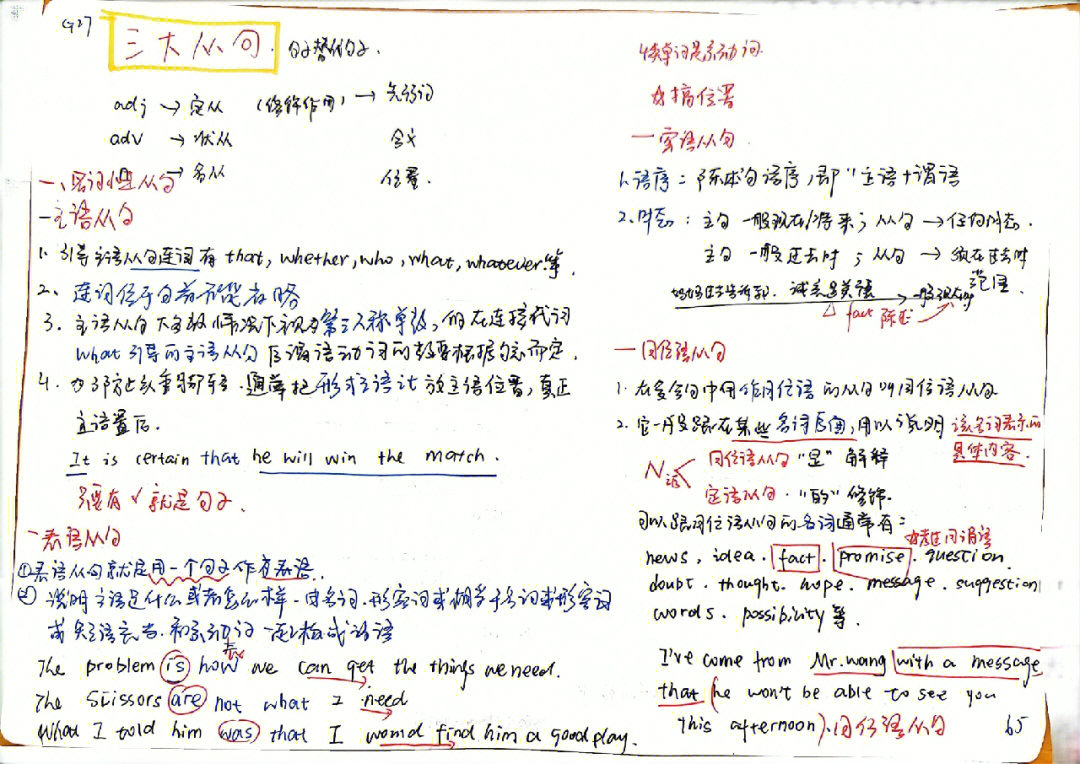 G27
三大从句. 句子替代句子.
adj → 定从 (修饰作用) → 先行词
adv → 状从 含义
n → 名从 位置.
一、名词性从句
一主语从句
1. 引导主语从句连词有 that, whether, who, what, whatever.等.
2. 连词位于句首不能省略
3. 主语从句大多数情况下视为第三人称单数, 但在连接代词
what 引导的主语从句后谓语动词的数要根据句意而定.
4. 为了防止头重脚轻.通常把形式主语it放主语位置, 真正
主语置后.
It is certain that he will win the match.
只要有 v 就是句子.
一表语从句
①表语从句就是用一个句子作为表语.
② 说明主语是什么或者怎么样.由名词.形容词或相当于名词或形容词
或短语充当.和系动词一起构成谓语
表
The problem is how we can get the things we need.
The scissors are not what I need
What I told him was that I would find him a good play.
单词是系动词.
☆搞位置
一宾语从句.
1.语序: 陈述句语序,即"主语+谓语
2.时态: 主句一般现在/将来; 从句 → 任何时态.
主句一般过去时; 从句 → 须在过去时
范围.
妈妈过去告诉我. 诚实是美德 → 一般现在时
△ fact 陈述
一同位语从句
1. 在复合句中用作同位语的从句叫同位语从句
2. 它一般跟在某些名词后面,用以说明该名词表示的
具体内容.
N词 同位语从句 "是" 解释
定语从句. "的" 修饰.
可以跟同位语从句的名词通常有:
news, idea. fact. promise. question.
doubt. thought. hope. message. suggestion
words. possibility 等.
I've come from Mr.wang with a message
that (he won't be able to see you
this afternoon).同位语从句
65